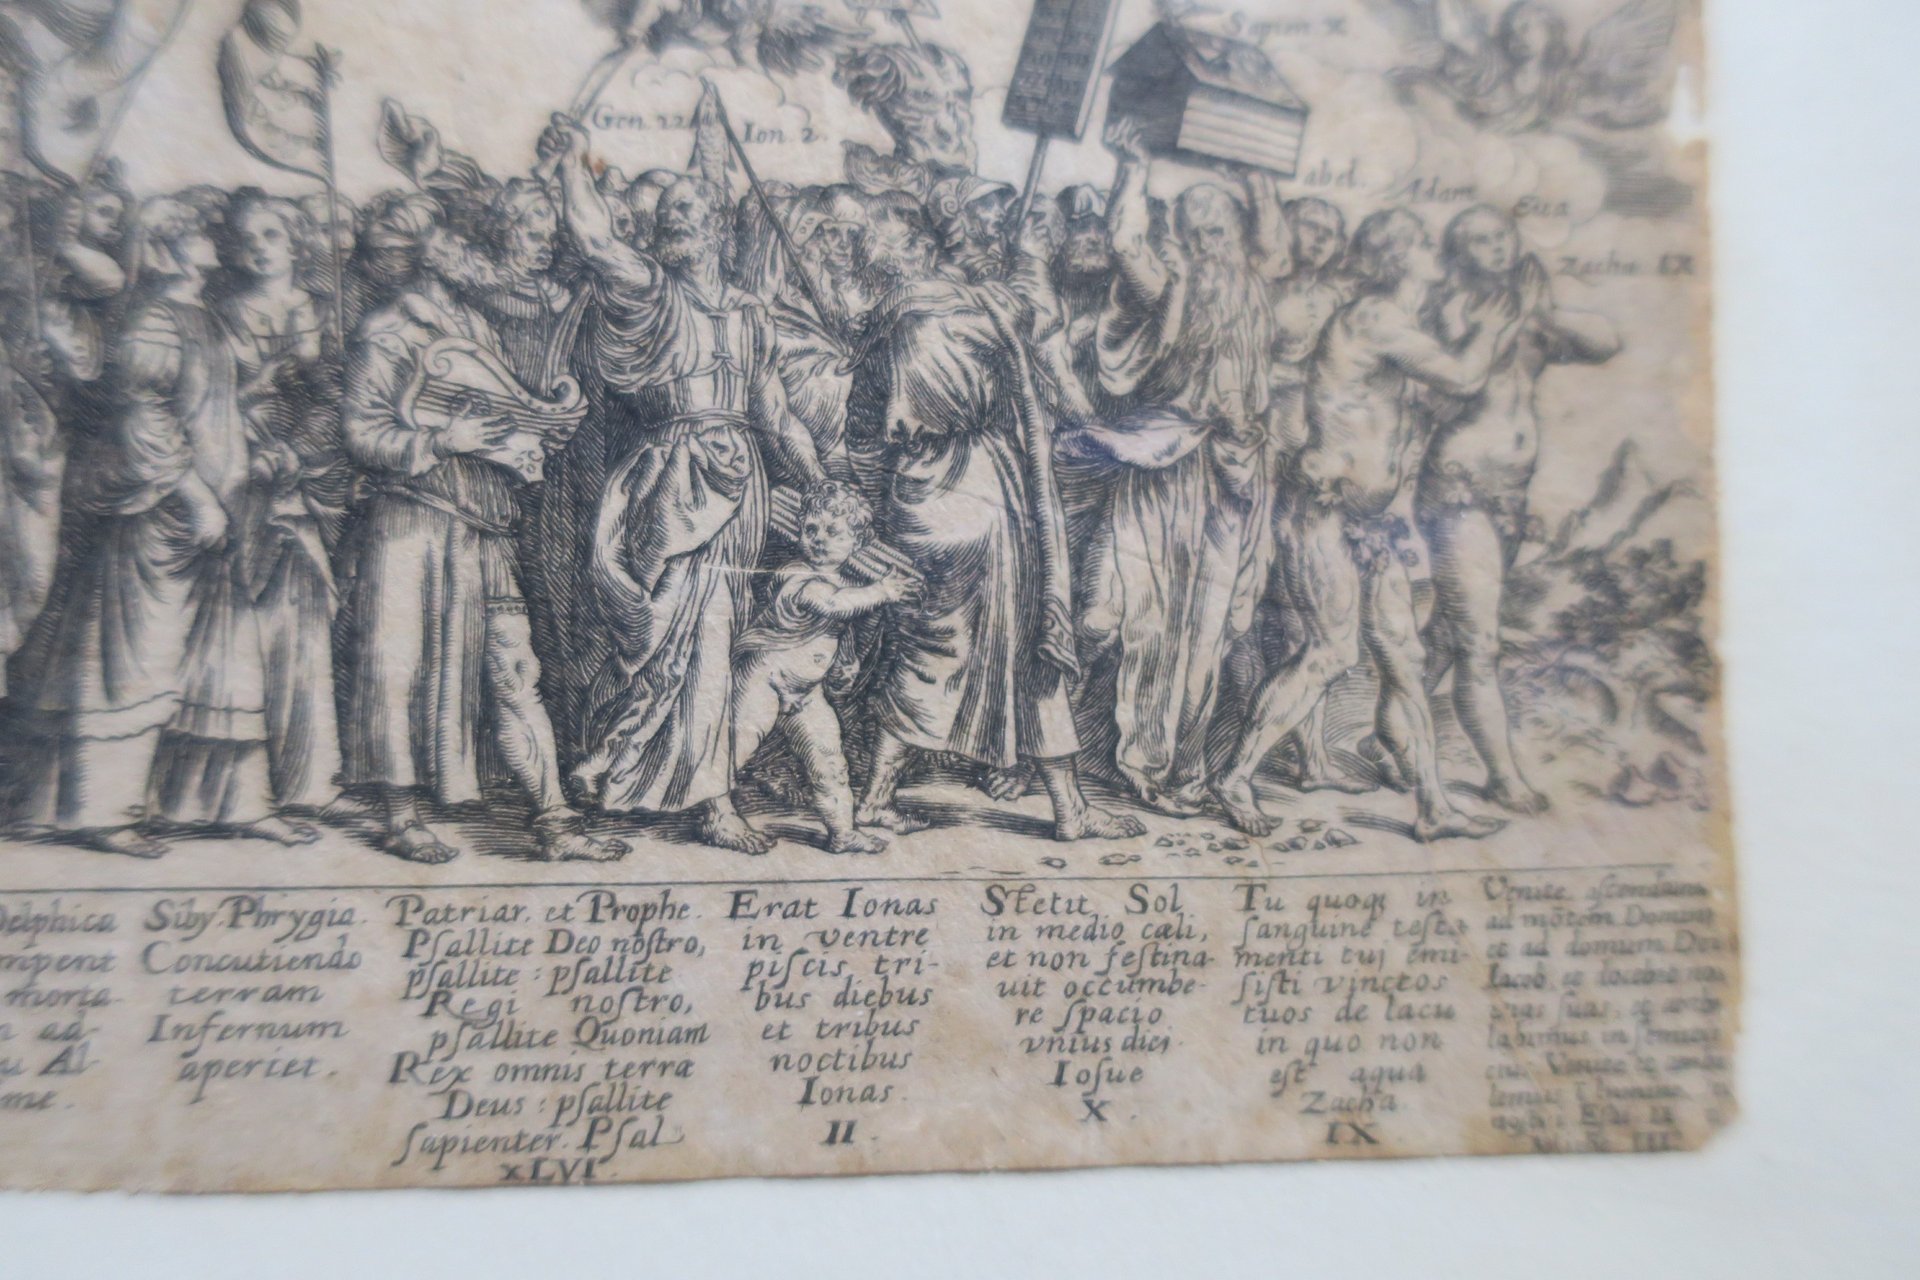 Sapien. X
Gen. 22
Ion. 2.
abel.
Adam
Eua
Zacha. IX
Delphica
mpent
morta-
ad-
u Al
me.
Siby. Phrygia.
Concutiendo
terram
Infernum
aperiet.
Patriar. et Prophe.
Psallite Deo nõstro,
psallite : psallite
Regi nostro,
psallite Quoniam
Rex omnis terra
Deus : psallite
sapienter. Psal
XLVI.
Erat Ionas
in ventre
piscis tri-
bus diebus
et tribus
noctibus
Ionas.
II.
Stetit Sol
in medio cæli,
et non festina-
uit occumbe-
re spacio
vnius diei.
Iosue
X.
Tu quoq; in
sanguine testa
menti tuj emi-
sisti vinctos
tuos de lacu
in quo non
est aqua
Zacha.
IX.
Venite ascendamus
ad mõtem Domini
et ad domum Dei
Iacob, et docebit nos
vias suas, et
in semitis
Venite